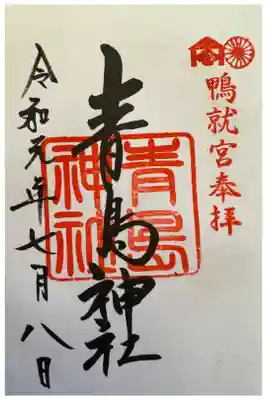 鴨就宮奉拝
青島神社
青島
神社
令和元年七月八日